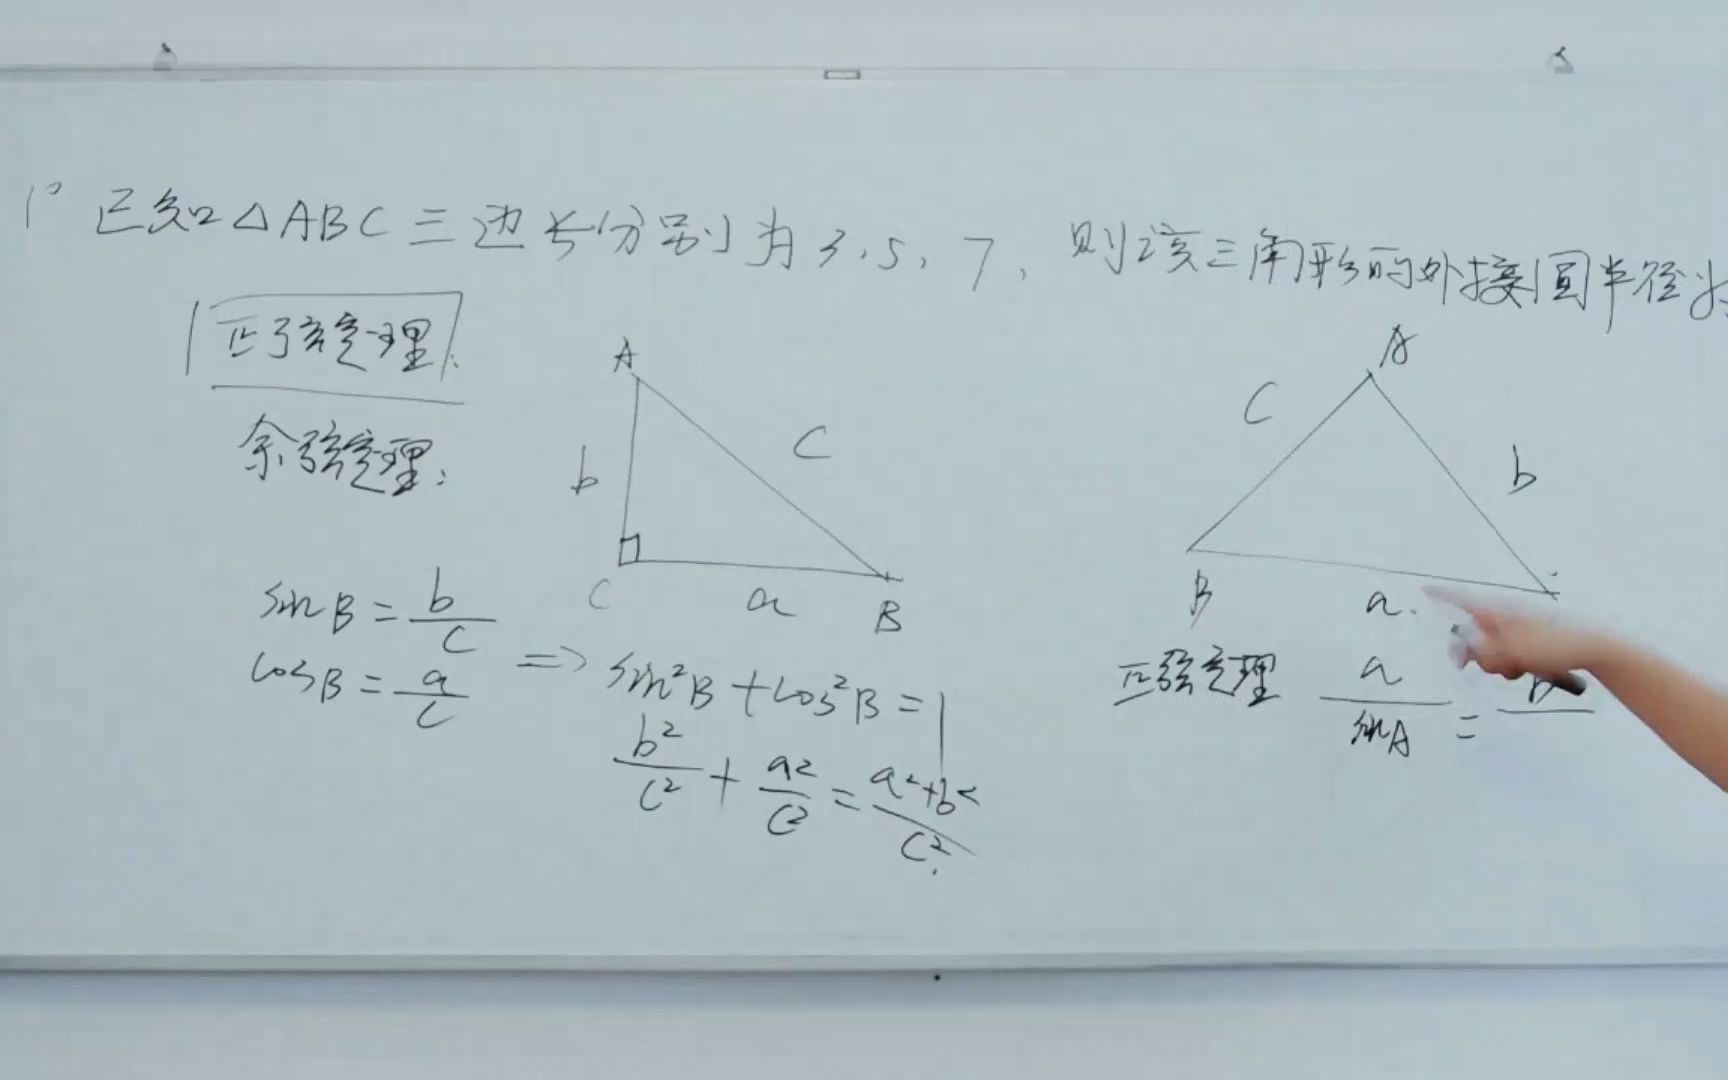 1° 已知△ABC三边长分别为3,5,7,则该三角形的外接圆半径为
正弦定理
余弦定理:
A
b
C
C
a
B
sinB = b/c
cosB = a/c
=> sin²B + cos²B = 1
b²/c² + a²/c² = a²+b²/c²
A
C
b
B
a
正弦定理 a/sinA = b